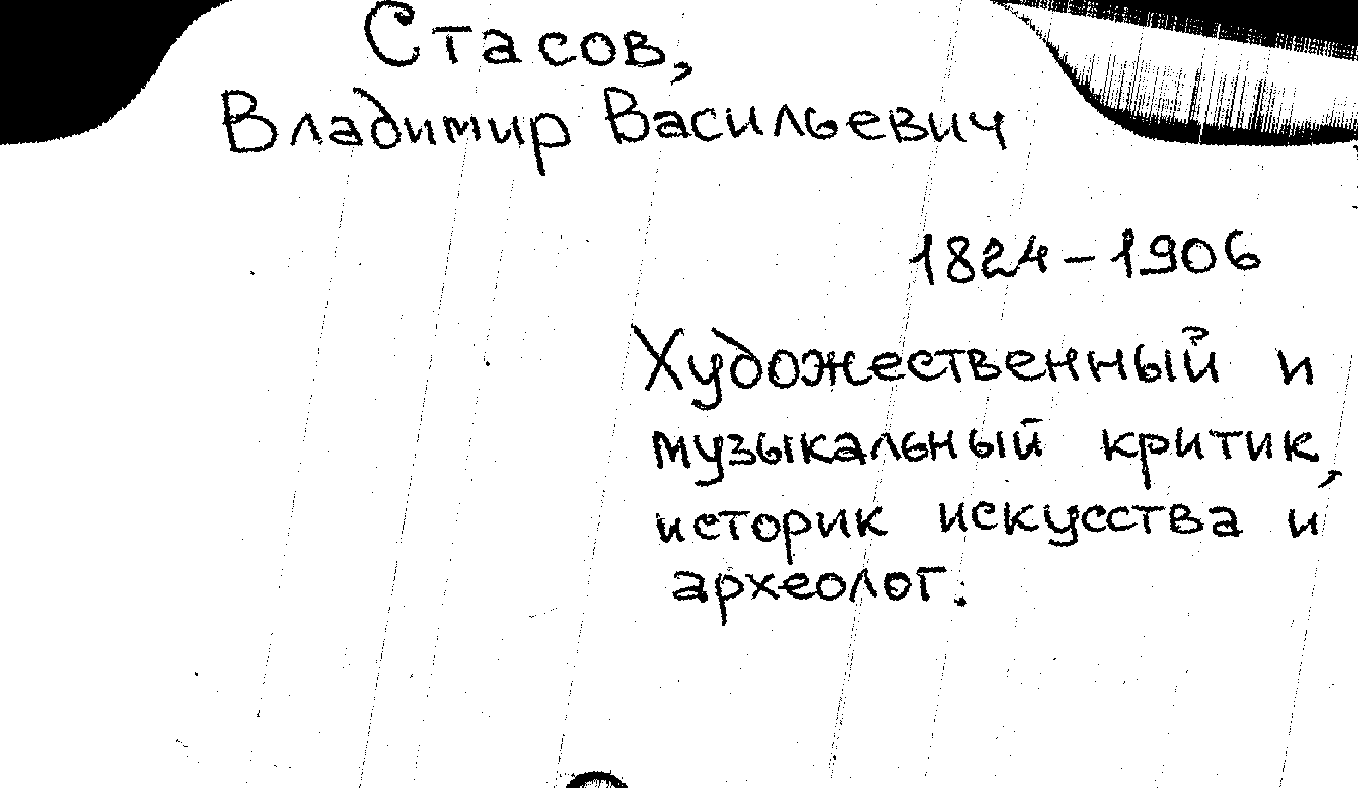 Стасов,
Владимир Васильевич
1824-1906
Художественный и
музыкальный критик,
историк искусства и
археолог.